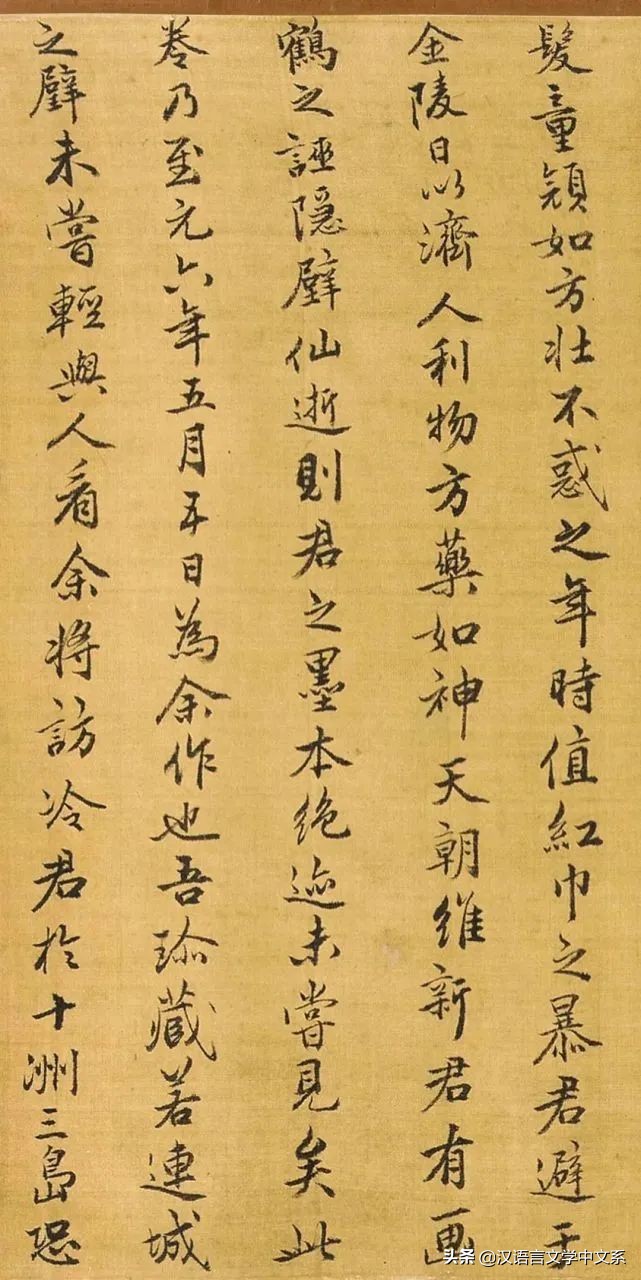 髮童顔如方壮不惑之年時值紅巾之暴君避于
金陵日以濟人利物方藥如神天朝維新君有画
鶴之誣隠壁仙逝則君之墨本絶迹未嘗見矣此
卷乃至元六年五月五日為余作也吾珎藏若連城
之璧未嘗輕與人看余将訪冷君於十洲三島恐
头条 @汉语言文学中文系